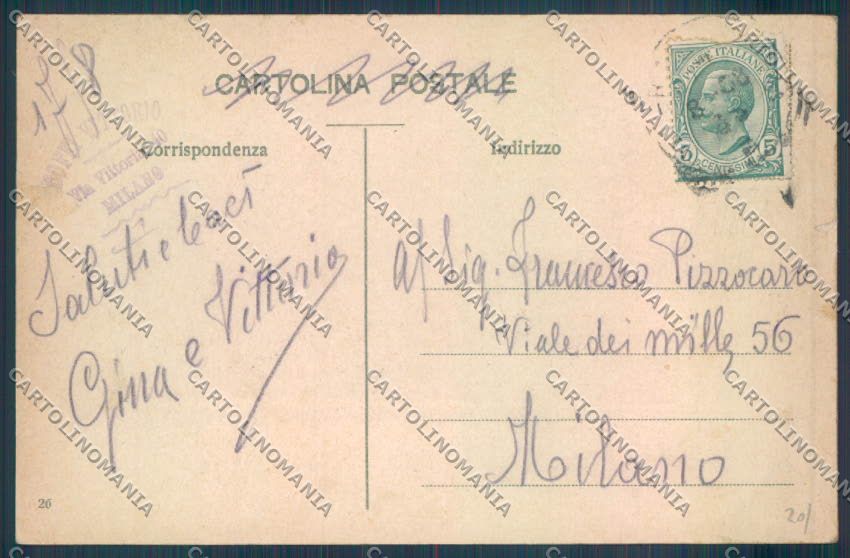 CARTOLINA POSTALE
Corrispondenza
Indirizzo
Via Vittoria
MILANO
POSTE ITALIANE
5 CENTESIMI 5
Saluti e baci
Gina e Vittorio
Al Sig. Francesco Pizzocari
Viale dei mille 56
Milano
26
20/
CARTOLINOMANIA